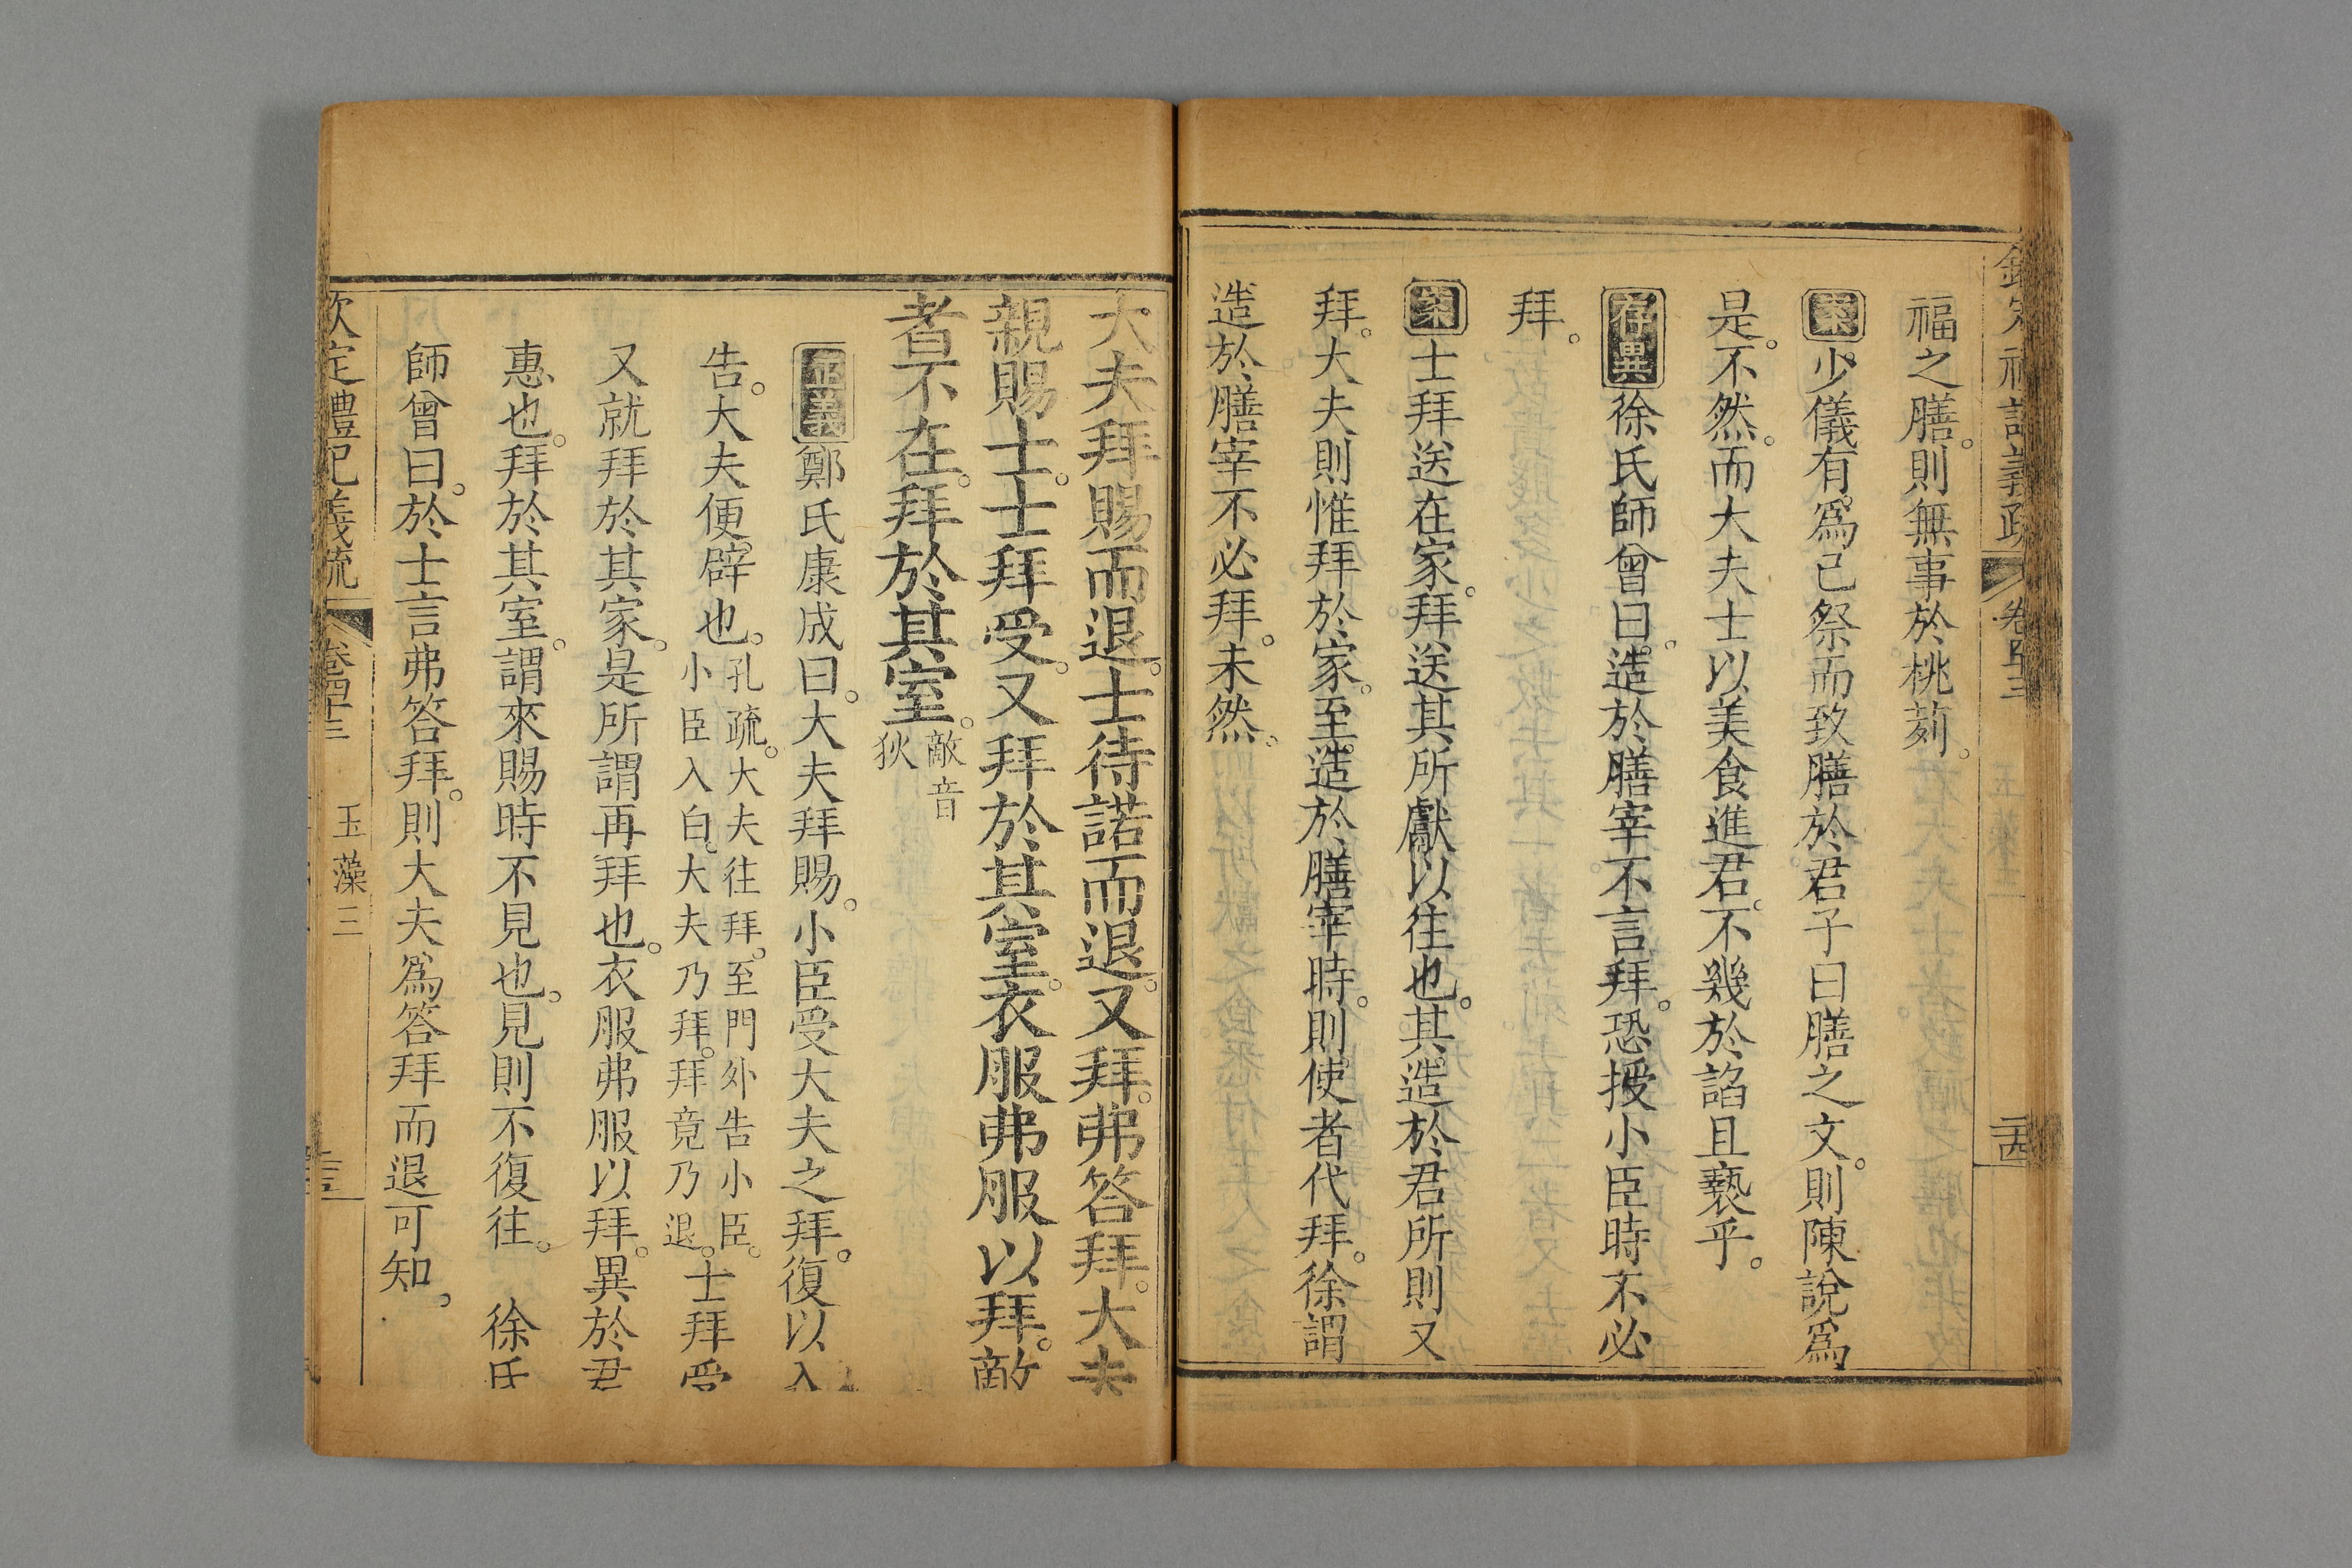 福之膳。則無事於桃茢。
案少儀有爲己祭而致膳於君子曰膳之文。則陳說爲
是。不然。而大夫士以美食進君。不幾於諂且褻乎。
存異徐氏師曾曰。造於膳宰不言拜。恐授小臣時不必
拜。
案士拜送在家。拜送其所獻以往也。其造於君所則又
拜。大夫則惟拜於家。至造於膳宰時。則使者代拜。徐謂
造於膳宰不必拜。未然。
大夫拜賜而退。士待諾而退。又拜。弗答拜。大夫
親賜士。士拜受。又拜於其室。衣服弗服以拜。敵
者不在。拜於其室。敵音
狄
正義鄭氏康成曰。大夫拜賜。小臣受大夫之拜。復以入
告。大夫便辟也。孔疏。大夫往拜。至門外告小臣。
小臣入白。大夫乃拜。拜竟乃退。士拜受
又就拜於其家。是所謂再拜也。衣服弗服以拜。異於君
惠也。拜於其室。謂來賜時不見也。見則不復往。 徐氏
師曾曰。於士言弗答拜。則大夫爲答拜而退可知。
欽定禮記義疏 卷四十三 玉藻三